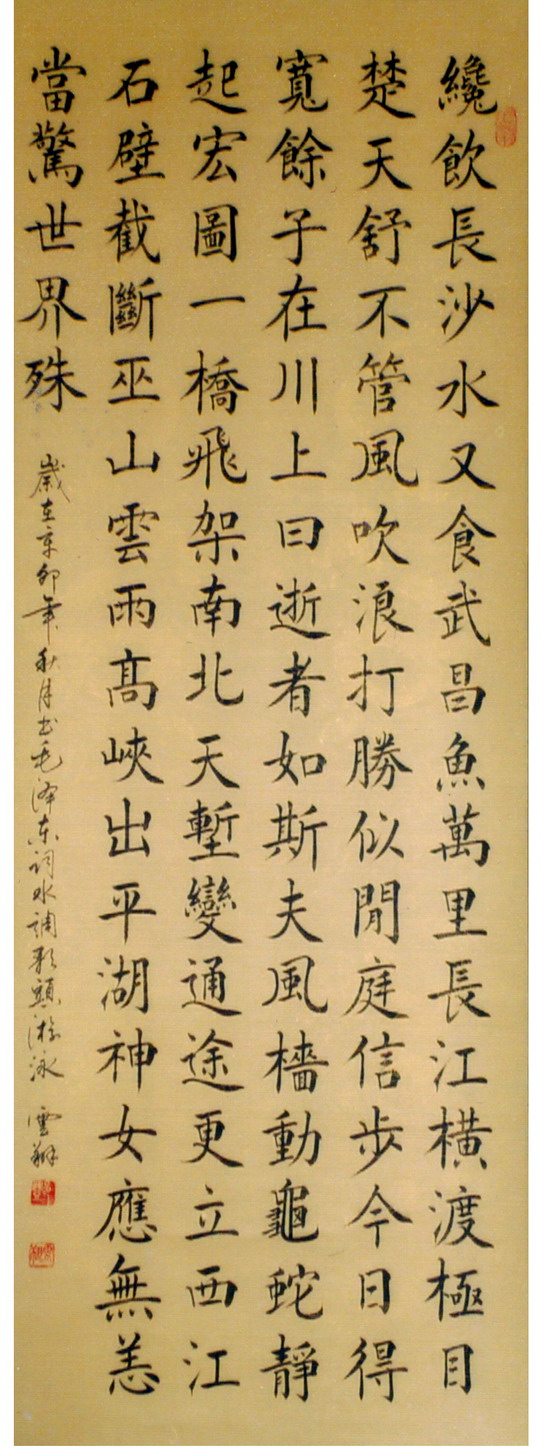 纔飲長沙水又食武昌魚萬里長江橫渡極目
楚天舒不管風吹浪打勝似閒庭信步今日得
寬餘子在川上曰逝者如斯夫風檣動龜蛇靜
起宏圖一橋飛架南北天塹變通途更立西江
石壁截斷巫山雲雨高峽出平湖神女應無恙
當驚世界殊
歲在辛卯年秋月书毛泽东词水调歌頭游泳 雲翔